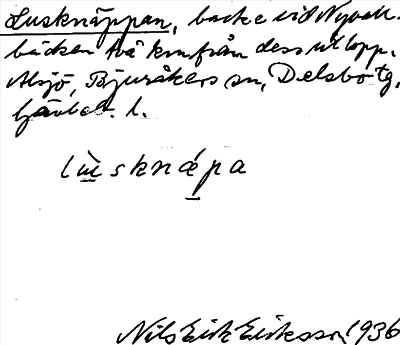 Lusknäppan, backe vid Nyvall-
bäcken två km från dess utlopp.
Alsjö, Bjuråkers sn, Delsbo tg,
Gävleb. l.
lùsknǽpa
Nils Erik Eriksson, 1936